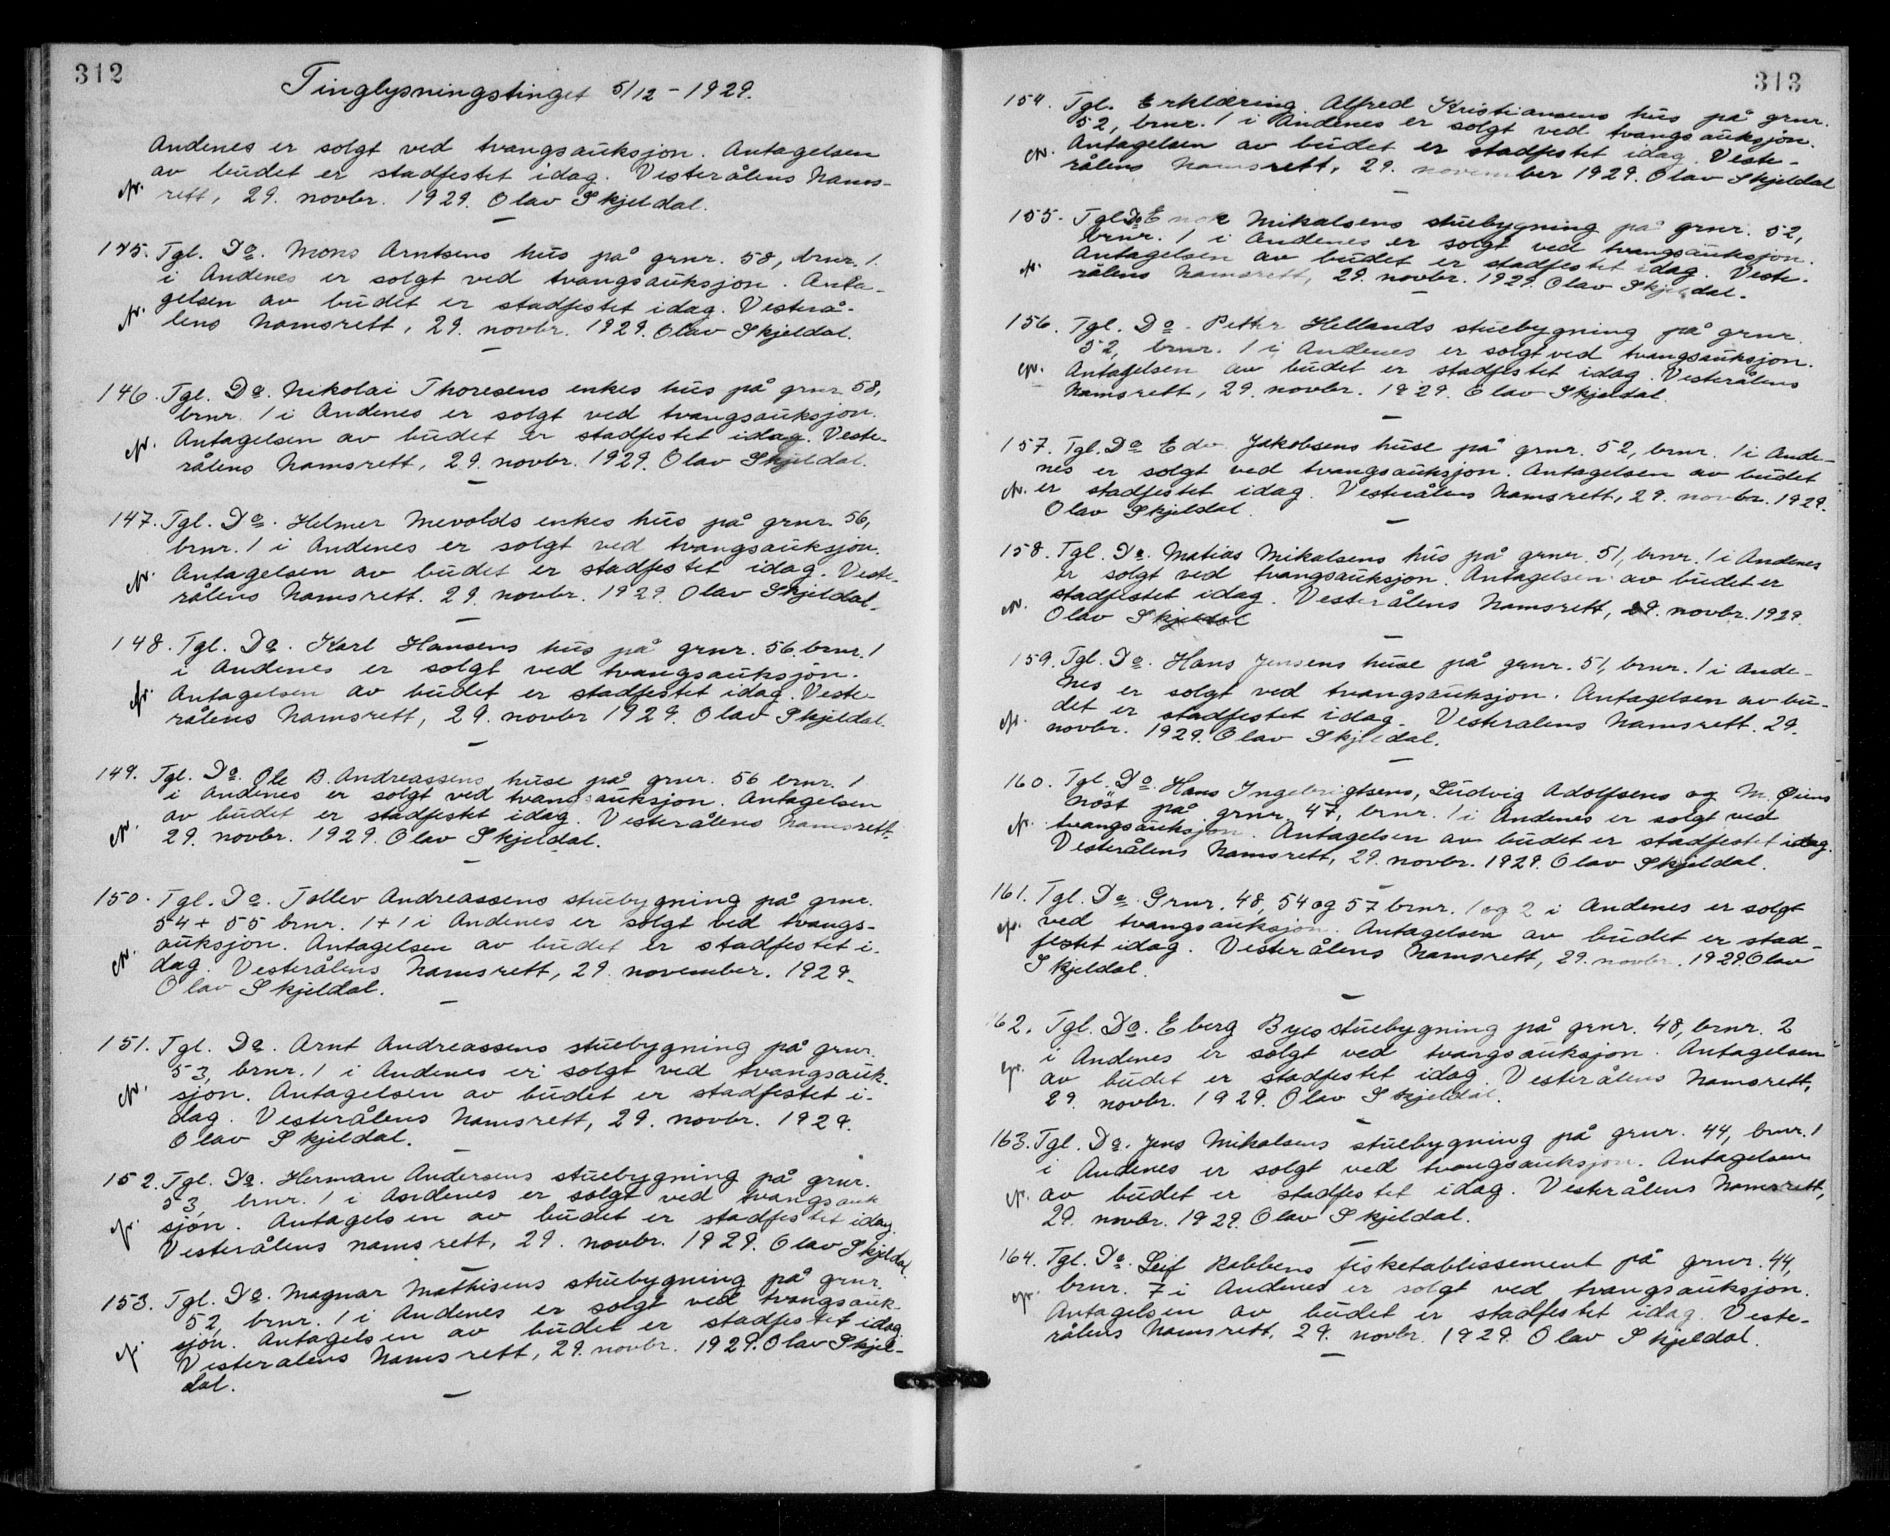 312
Tinglysningstinget 5/12 - 1929.
Andenes er solgt ved tvangsauksjon. Antagelsen
av budet er stadfestet idag. Vesterålens Nams-
rett, 29. novbr. 1929. Olav Skjeldal.
145. Tgl. Do. Mons Arntsens hus på grnr. 58, brnr. 1
i Andenes er solgt ved tvangsauksjon. Anta-
gelsen av budet er stadfestet idag. Vesterå-
lens Namsrett, 29. novbr. 1929. Olav Skjeldal.
146. Tgl. Do. Nikolai Thoresens enkes hus på grnr. 58,
brnr. 1 i Andenes er solgt ved tvangsauksjon.
Antagelsen av budet er stadfestet idag. Veste-
rålens Namsrett, 29. novbr. 1929. Olav Skjeldal.
147. Tgl. Do. Helmer Mevolds enkes hus på grnr. 56,
brnr. 1 i Andenes er solgt ved tvangsauksjon.
Antagelsen av budet er stadfestet idag. Veste-
rålens Namsrett. 29. novbr. 1929. Olav Skjeldal.
148. Tgl. Do. Karl Hansens hus på grnr. 56. brnr. 1
i Andenes er solgt ved tvangsauksjon.
Antagelsen av budet er stadfestet idag. Veste-
rålens Namsrett, 29. novbr 1929. Olav Skjeldal.
149. Tgl. Do. Ole B. Andreassens huse på grnr. 56 brnr. 1
i Andenes er solgt ved tvangsauksjon. Antagelsen
av budet er stadfestet idag. Vesterålens Namsrett.
29. novbr. 1929. Olav Skjeldal.
150. Tgl. Do. Tollev Andreassens stuebygning på grnr.
54 + 55 brnr. 1+1 i Andenes er solgt ved tvangs-
auksjon. Antagelsen av budet er stadfestet i-
dag. Vesterålens Namsrett, 29. november. 1929.
Olav Skjeldal.
151. Tgl. Do. Arnt Andreassens stuebygning på grnr.
53, brnr. 1 i Andenes er solgt ved tvangsauk-
sjon. Antagelsen av budet er stadfestet i-
dag. Vesterålens Namsrett, 29. novbr. 1929.
Olav Skjeldal.
152. Tgl. Do. Herman Andersens stuebygning på grnr.
53, brnr. 1 i Andenes er solgt ved tvangsauk
sjon. Antagelsen av budet er stadfestet idag.
Vesterålens namsrett, 29. novbr. 1929. Olav Skjeldal.
153. Tgl. Do. Magnar Mathisens stuebygning på grnr.
52, brnr. 1 i Andenes er solgt ved tvangsauk-
sjon. Antagelsen av budet er stadfestet idag.
Vesterålens Namsrett, 29. novbr. 1929. Olav Skjel-
dal.
313
154. Tgl. Erklæring. Alfred Kristiansens hus på grnr.
52, brnr. 1 i Andenes er solgt ved tvangsauksjon.
Antagelsen av budet er stadfestet idag. Veste-
rålens Namsrett, 29. november 1929. Olav Skjeldal
155. Tgl. Do Enok Mikalsens stuebygning på grnr. 52,
brnr. 1 i Andenes er solgt ved tvangsauksjon.
Antagelsen av budet er stadfestet idag. Veste-
rålens Namsrett, 29. novbr. 1929. Olav Skjeldal.
156. Tgl. Do. Petter Hellands stuebygning på grnr.
52, brnr. 1 i Andenes er solgt ved tvangsauksjon.
Antagelsen av budet er stadfestet idag. Vesterålens
Namsrett, 29. novbr. 1929. Olav Skjeldal.
157. Tgl. Do Jakobsens huse på grnr. 52, brnr. 1 i Ande-
nes er solgt ved tvangsauksjon. Antagelsen av budet
er stadfestet idag. Vesterålens Namsrett, 29. novbr. 1929.
Olav Skjeldal.
158. Tgl. Do. Matias Mikalsens hus på grnr. 51, brnr. 1 i Andenes
er solgt ved tvangsauksjon. Antagelsen av budet er
stadfestet idag. Vesterålens Namsrett, 29. novbr. 1929.
Olav Skjeldal
159. Tgl. Do. Hans Jensens huse på grnr. 51, brnr. 1 i Ande-
nes er solgt ved tvangsauksjon. Antagelsen av bu-
det er stadfestet idag. Vesterålens Namsrett. 29.
novbr. 1929. Olav Skjeldal.
160. Tgl. Do. Hans Ingebrigtsens, Ludvig Adolfsens og M. Øiens
nöst på grnr. 47, brnr. 1 i Andenes er solgt ved
tvangsauksjon. Antagelsen av budet er stadfestet idag.
Vesterålens Namsrett, 29. novbr. 1929. Olav Skjeldal.
161. Tgl. Do. Grnr. 48, 54 og 57 brnr. 1 og 2 i Andenes er solgt
ved tvangsauksjon. Antagelsen av budet er stad-
festet idag. Vesterålens Namsrett, 29. novbr. 1929. Olav
Skjeldal.
162. Tgl. Do. Eberg Byes stuebygning på grnr. 48, brnr. 2
i Andenes er solgt ved tvangsauksjon. Antagelsen
av budet er stadfestet idag. Vesterålens Namsrett,
29. novbr. 1929. Olav Skjeldal.
163. Tgl. Do. Jens Mikalsens stuebygning på grnr. 44, brnr. 1
i Andenes er solgt ved tvangsauksjon. Antagelsen
av budet er stadfestet idag. Vesterålens Namsrett,
29. novbr. 1929. Olav Skjeldal.
164. Tgl. Do. Leif Robbens fisketablissement på grnr. 44,
brnr. 7 i Andenes er solgt ved tvangsauksjon.
Antagelsen av budet er stadfestet idag. Veste-
rålens Namsrett, 29. novbr. 1929. Olav Skjeldal.